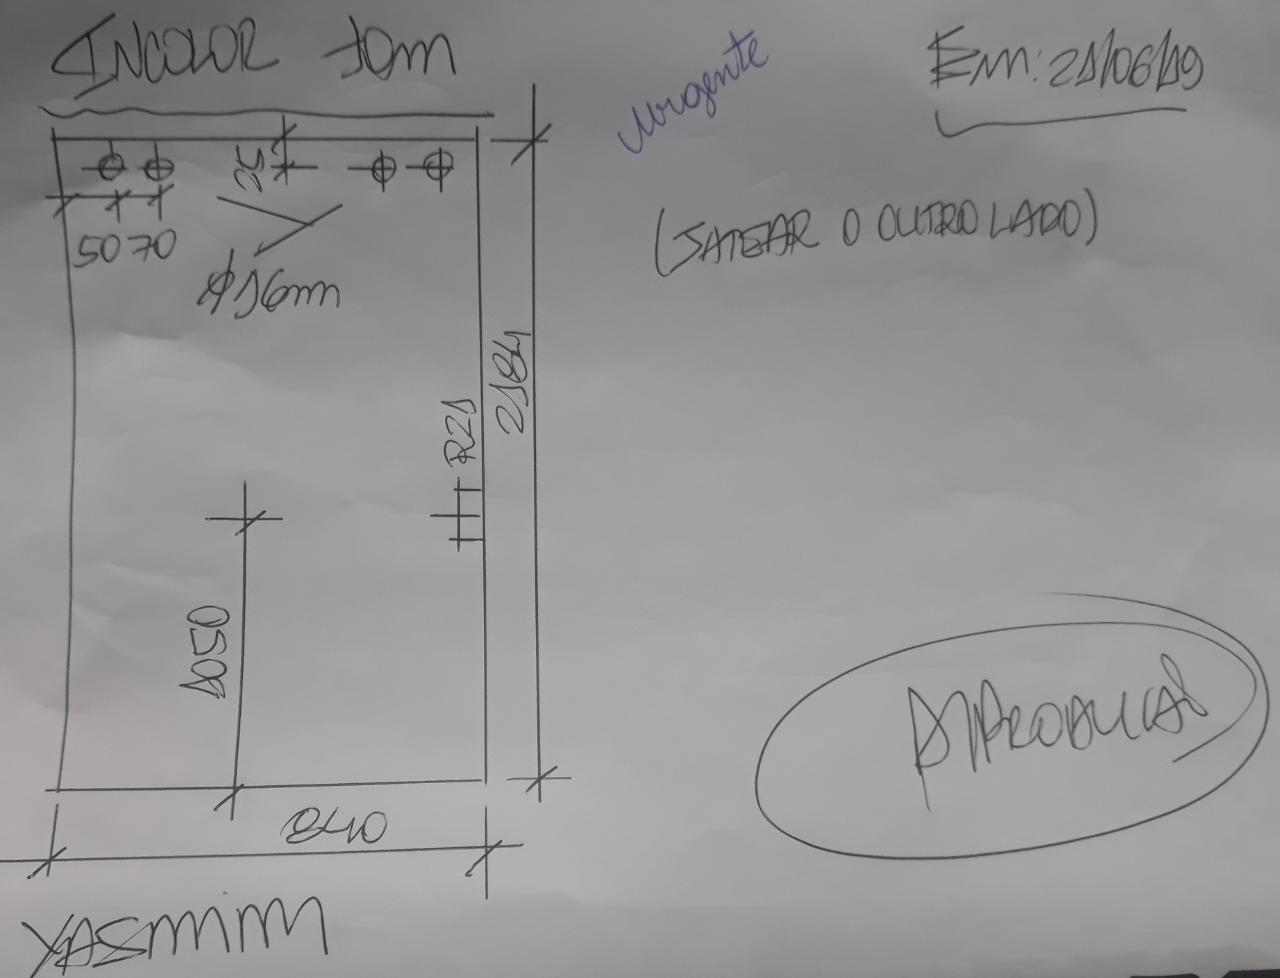 INCOLOR 10m
Urgente
Em: 21/06/19
(JATEAR O OUTRO LADO)
25
50 70
Ø16mm
2184
R21
1050
840
YASMIM